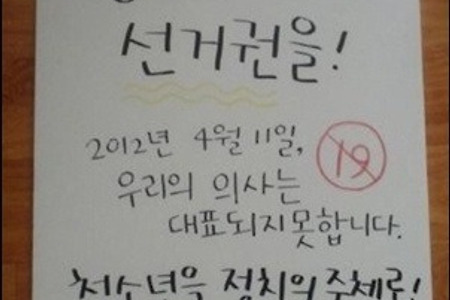 선거권을!
2012년 4월 11일,
19
우리의 의사는
대표되지못합니다.
청소년을 정치의 주체로!